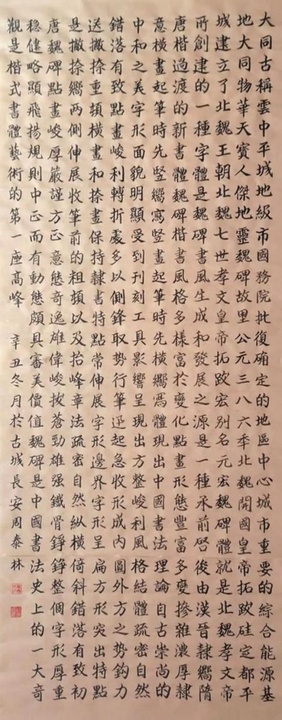 大同古稱雲中平城地級市國務院批復確定的地區中心城市重要的綜合能源基
地大同物華天寶人傑地靈魏碑故里公元三八六季北魏開國皇帝拓跋珪定都平
城建立了北魏王朝北魏七世孝文皇帝拓跋宏別名元宏魏碑體就是北魏孝文帝
所創建的一種字體是魏碑書風生成和發展之源是一種承前啓後由漢晉隸嚮隋
唐楷過渡的新書體魏碑楷書風格多樣富於變化點畫形態豐富多變摻雜濃厚隸
意橫畫起筆時先竪嚮寫竪畫起筆時先橫嚮寫體現出中國書法理論自古崇尚的
中和之美字形面貌明顯受到刊刻工具影響呈現出方整峻利風格結體疏密自然
錯落有致點畫峻利轉折處多以側鋒取勢行筆迅起急收形成內圓外方之勢鈎力
送撇捺重頓橫畫和捺畫保持隸書特點常伸展字形邊界字形呈扁方形突出特點
是撇捺嚮兩側伸展收筆前的粗頓以及抬峰章法疏密自然縱橫倚斜錯落有致初
唐魏碑點畫峻厚嚴謹方正意態奇逸雄偉峻拔蒼勁雄强鐵骨錚錚整個字形厚重
穩健略顯飛揚規則中正而有動態頗具審美價值魏碑是中國書法史上的一大奇
觀是楷式書體藝術的第一座高峰 辛丑冬月於古城長安周泰林